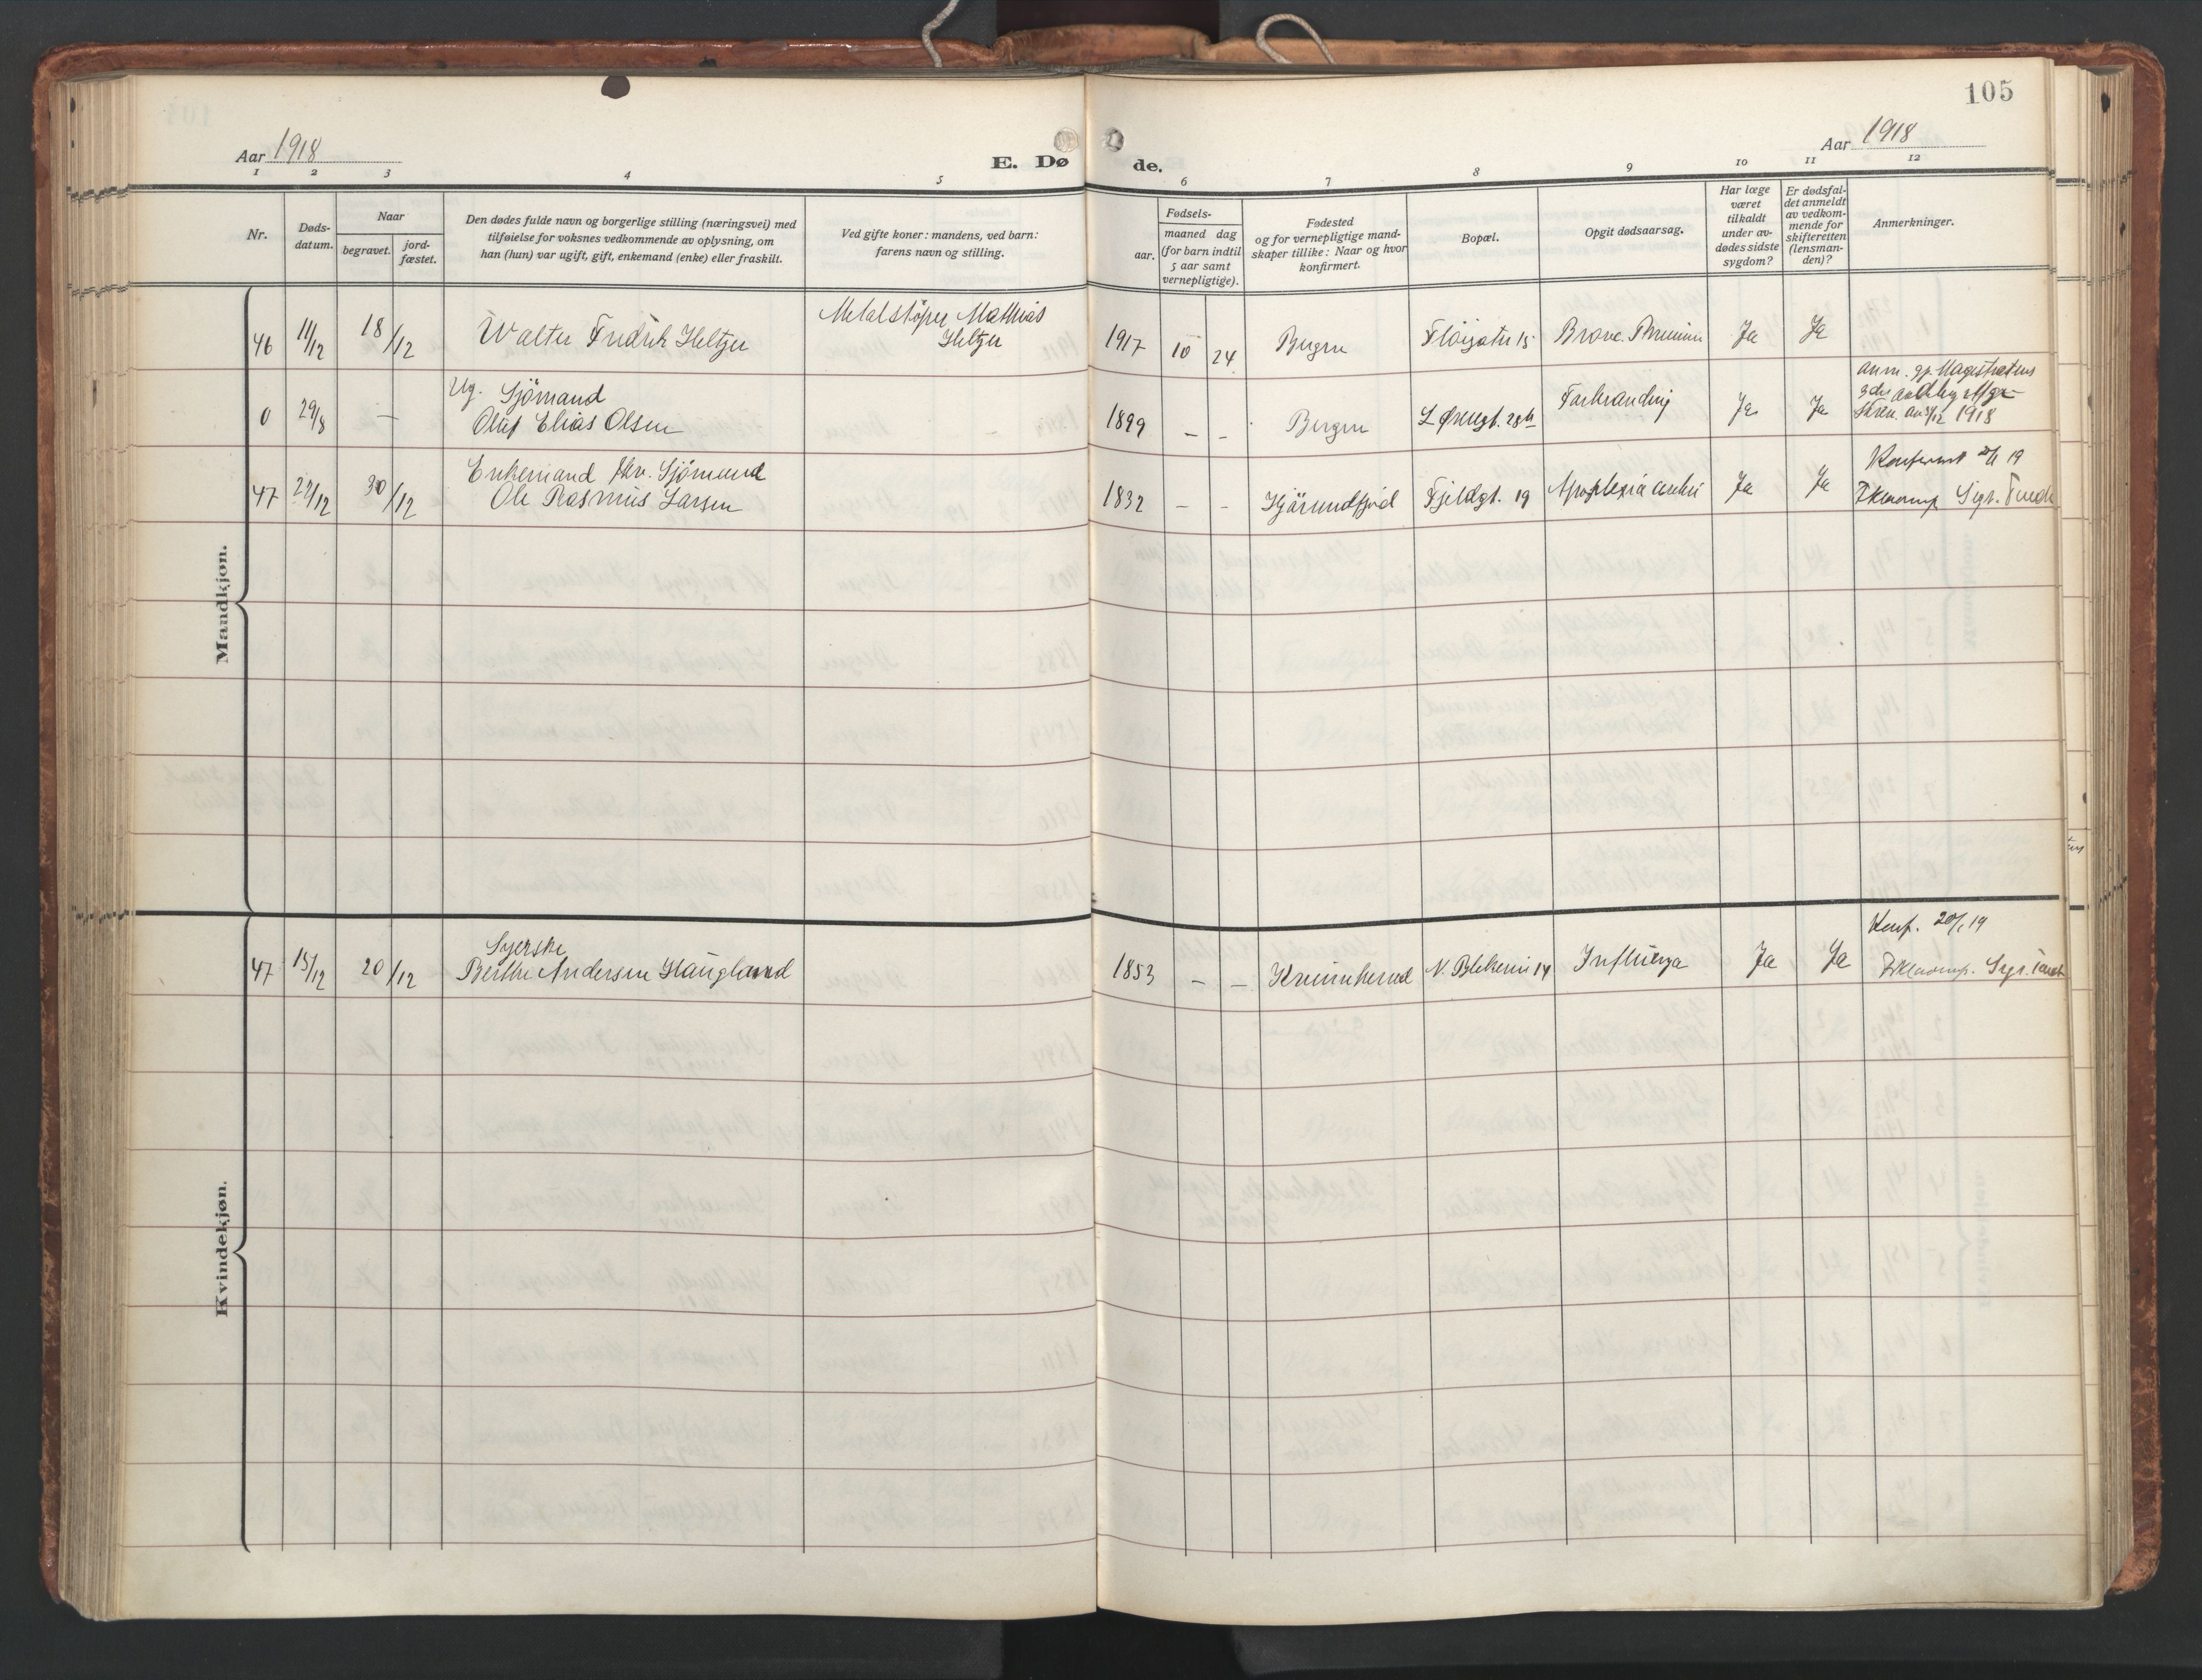 105
Aar 1918
E. Dø de.
Aar 1918
1 2 3 4 5 6 7 8 9 10 11 12
Nr.
Døds-
datum.
Naar
begravet.
jord-
fæstet.
Den dødes fulde navn og borgerlige stilling (næringsvei) med
tilføielse for voksnes vedkommende av oplysning, om
han (hun) var ugift, gift, enkemand (enke) eller fraskilt.
Ved gifte koner: mandens, ved barn:
farens navn og stilling.
Fødsels-
aar.
maaned dag
(for barn indtil
5 aar samt
vernepligtige).
Fødested
og for vernepligtige mand-
skaper tillike: Naar og hvor
konfirmert.
Bopæl.
Opgit dødsaarsag.
Har læge
været
tilkaldt
under av-
dødes sidste
sygdom?
Er dødsfal-
det anmeldt
av vedkom-
mende for
skifteretten
(lensman-
den)?
Anmerkninger.
Mandkjøn.
46 11/12 18/12 Walter Fredrik Heltzer
Metalstöper Mathias
Heltzer
1917 10 24 Bergen Flöigatu 15 Ja Ja
0 29/8 — Ug. Sjömand
Oluf Elias Olsen
1899 – – Bergen L Øregt. 28b Forbrænding Ja Ja
anm. gj. Magistratens
1918
47 22/12 30/12 Enkemand fhv. Sjömand
Ole Rasmus Larsen
1832 – – Hjörundfjord Fjeldgt. 19 Apoplexia cerebri Ja Ja
19
Kvindekjøn.
47 15/12 20/12 Syerske
Berthe Andersen Haugland
1853 – – Kvinnherred N. Blekevei 14 Influenza Ja Ja
Konf. 20/1 19